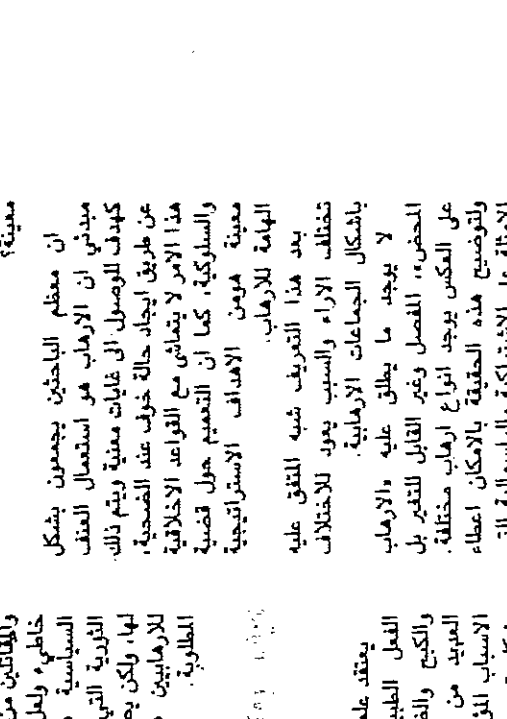 معينة؟
ان معظم الباحثين يجمعون بشكل
مبدئي ان الارهاب هو استعمال العنف
كهدف للوصول الى غايات معنية ويتم ذلك
عن طريق ايجاد حالة خوف عند الضحية،
هذا الامر لا يتماشى مع القواعد الاخلاقية
والسلوكية، كما ان التعميم حول قضية
معينة هومن الاهداف الاستراتيجية
الهامة للارهاب.
بعد هذا التعريف شبه المتفق عليه
تختلف الاراء والسبب يعود للاختلاف
باشكال الجماعات الارهابية.
لا يوجد ما يطلق عليه «الارهاب
المحض»، المفصل وغير القابل للتغير بل
على العكس يوجد انواع ارهاب مختلفة.
ولتوضيح هذه الحقيقة بالامكان اعطاء
الامثلة على الاشتراكية والراسمالية
والمقاتلين من
خاطيء ولعل
السياسية
الثورية التي
للارهابيين
لها، ولكن
المطلوبة.
يعتقد
الفعل
والكبح
العديد من
الاسباب